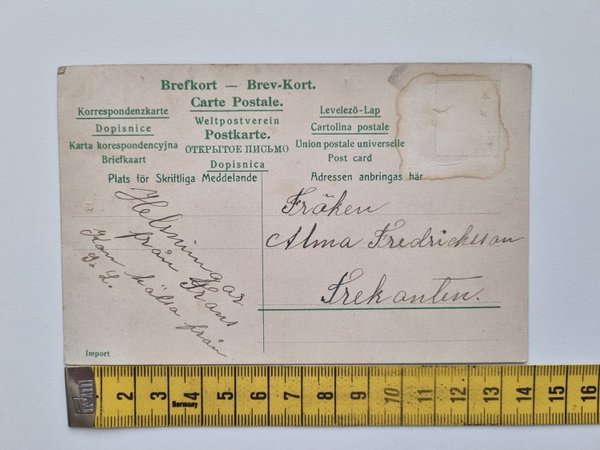 Brefkort — Brev-Kort.
Carte Postale.
Weltpostverein
Postkarte.
ОТКРЫТОЕ ПИСЬМО
Dopisnica
Korrespondenzkarte
Dopisnice
Karta korespondencyjna
Briefkaart
Levelező-Lap
Cartolina postale
Union postale universelle
Post card
Plats för Skriftliga Meddelande
Adressen anbringas här
Helsningar
från Frans
Kan hälsa från
Fröken
Alma Fredricksson
Trekanten.
Import
2 3 4 5 6 7 8 9 10 11 12 13 14 15 16
Germany